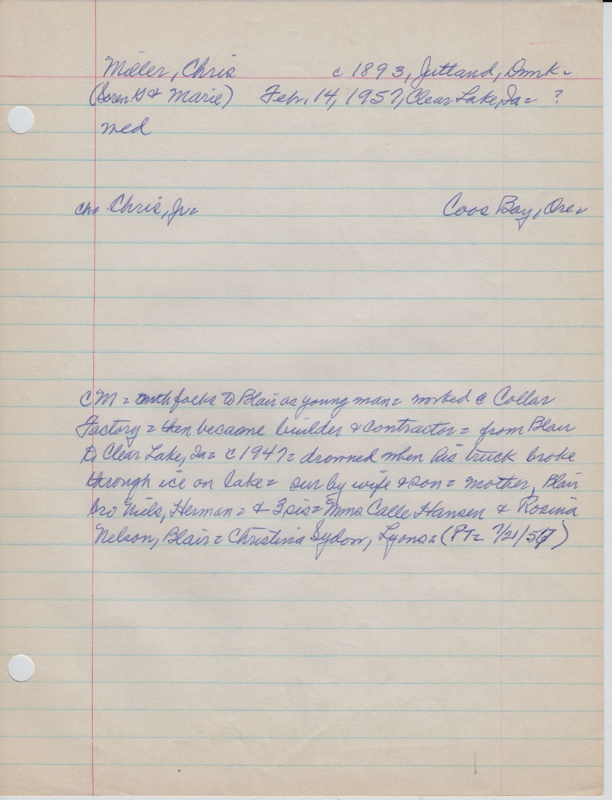 Miller, Chris c 1893, Jutland, Dmrk-
(Soren & Marie) Feb. 14, 1957, Clear Lake, Ia= ?
med
ch= Chris, Jr= Coos Bay, Ore=
CM = folks to Blair as young man= worked @ Collar
Factory = then became builder & contractor = from Blair
to Clear Lake, Ia= c 1947= drowned when his truck broke
through ice on lake= sur by wife & son= mother, Blair
bro Niels, Herman= & 3 sis= Mmes Calle Hansen & Rosina
Nelson, Blair= Christina Sydow, Lyons= (PT= 2/21/57)